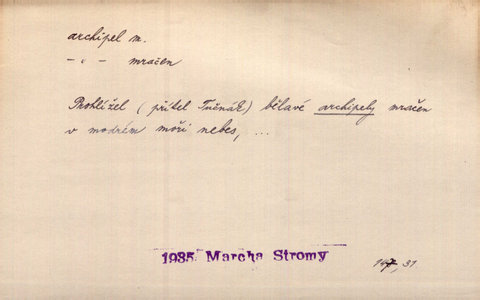 archipel m.
- „ - mračen
Prohlížel (přítel Tučňák) bělavé archipely mračen
v modrém moři nebes, ...
1935 Marcha Stromy
, 31